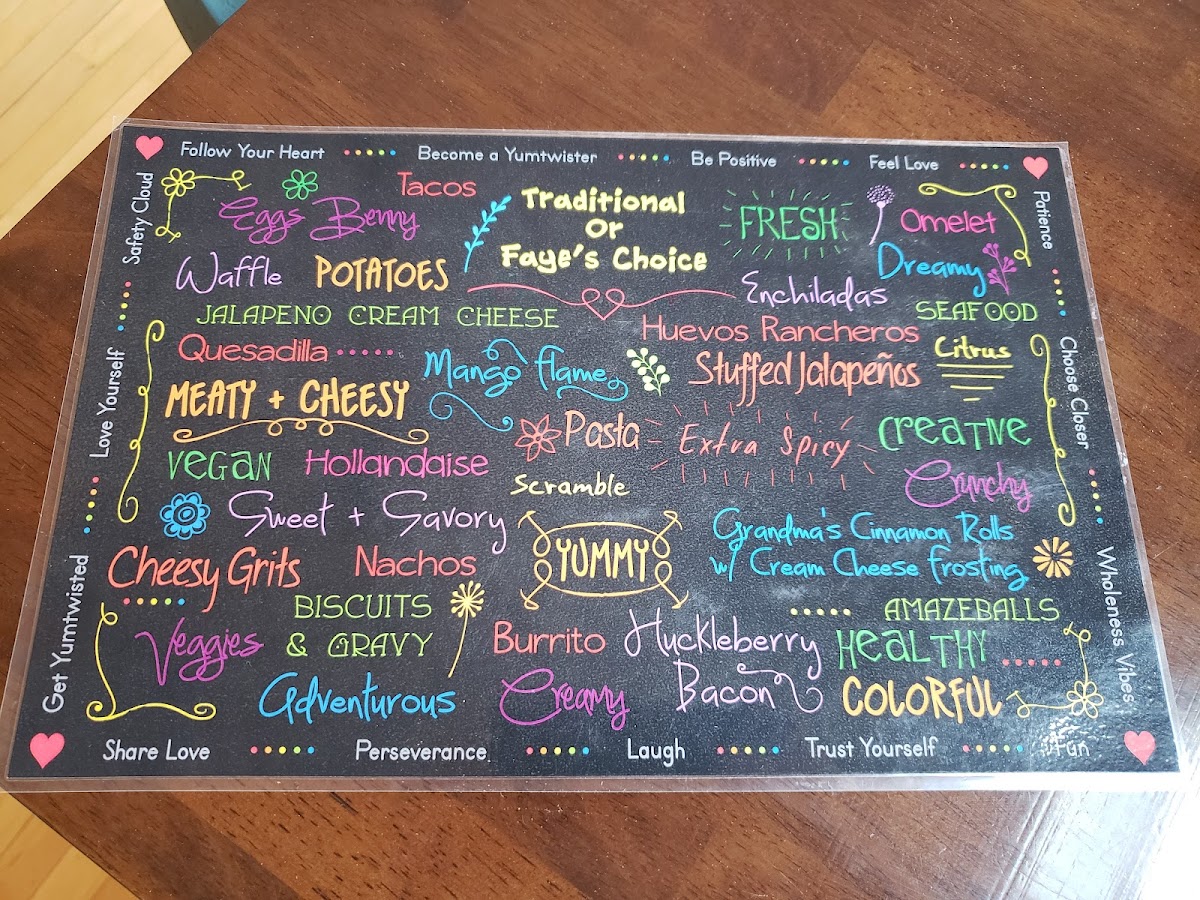 Follow Your Heart
Become a Yumtwister
Be Positive
Feel Love
Safety Cloud
Love Yourself
Get Yumtwisted
Patience
Choose Closer
Wholeness Vibes
Tacos
Eggs Benny
Traditional
Or
Faye's Choice
FRESH
Omelet
Waffle
POTATOES
Dreamy
Enchiladas
JALAPENO CREAM CHEESE
SEAFOOD
Huevos Rancheros
Quesadilla
Mango flame
Stuffed Jalapeños
Citrus
MEATY + CHEESY
Pasta
Extra Spicy
CREATIVE
VEGAN
Hollandaise
Crunchy
Scramble
Sweet + Savory
Grandma's Cinnamon Rolls
w/ Cream Cheese frosting
YUMMY
Cheesy Grits
Nachos
BISCUITS
& GRAVY
AMAZEBALLS
Veggies
Burrito
Huckleberry
Bacon
HEALTHY
Adventurous
Creamy
COLORFUL
Share Love
Perseverance
Laugh
Trust Yourself
Fun